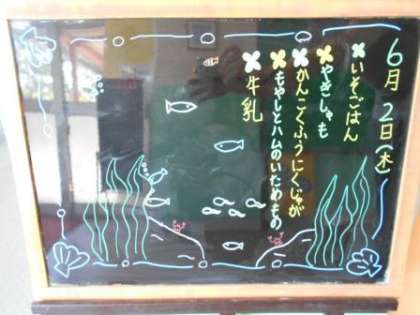 6月2日(木)
いそごはん
やきししゃも
かんこくふうにくじゃが
もやしとハムのいためもの
牛乳